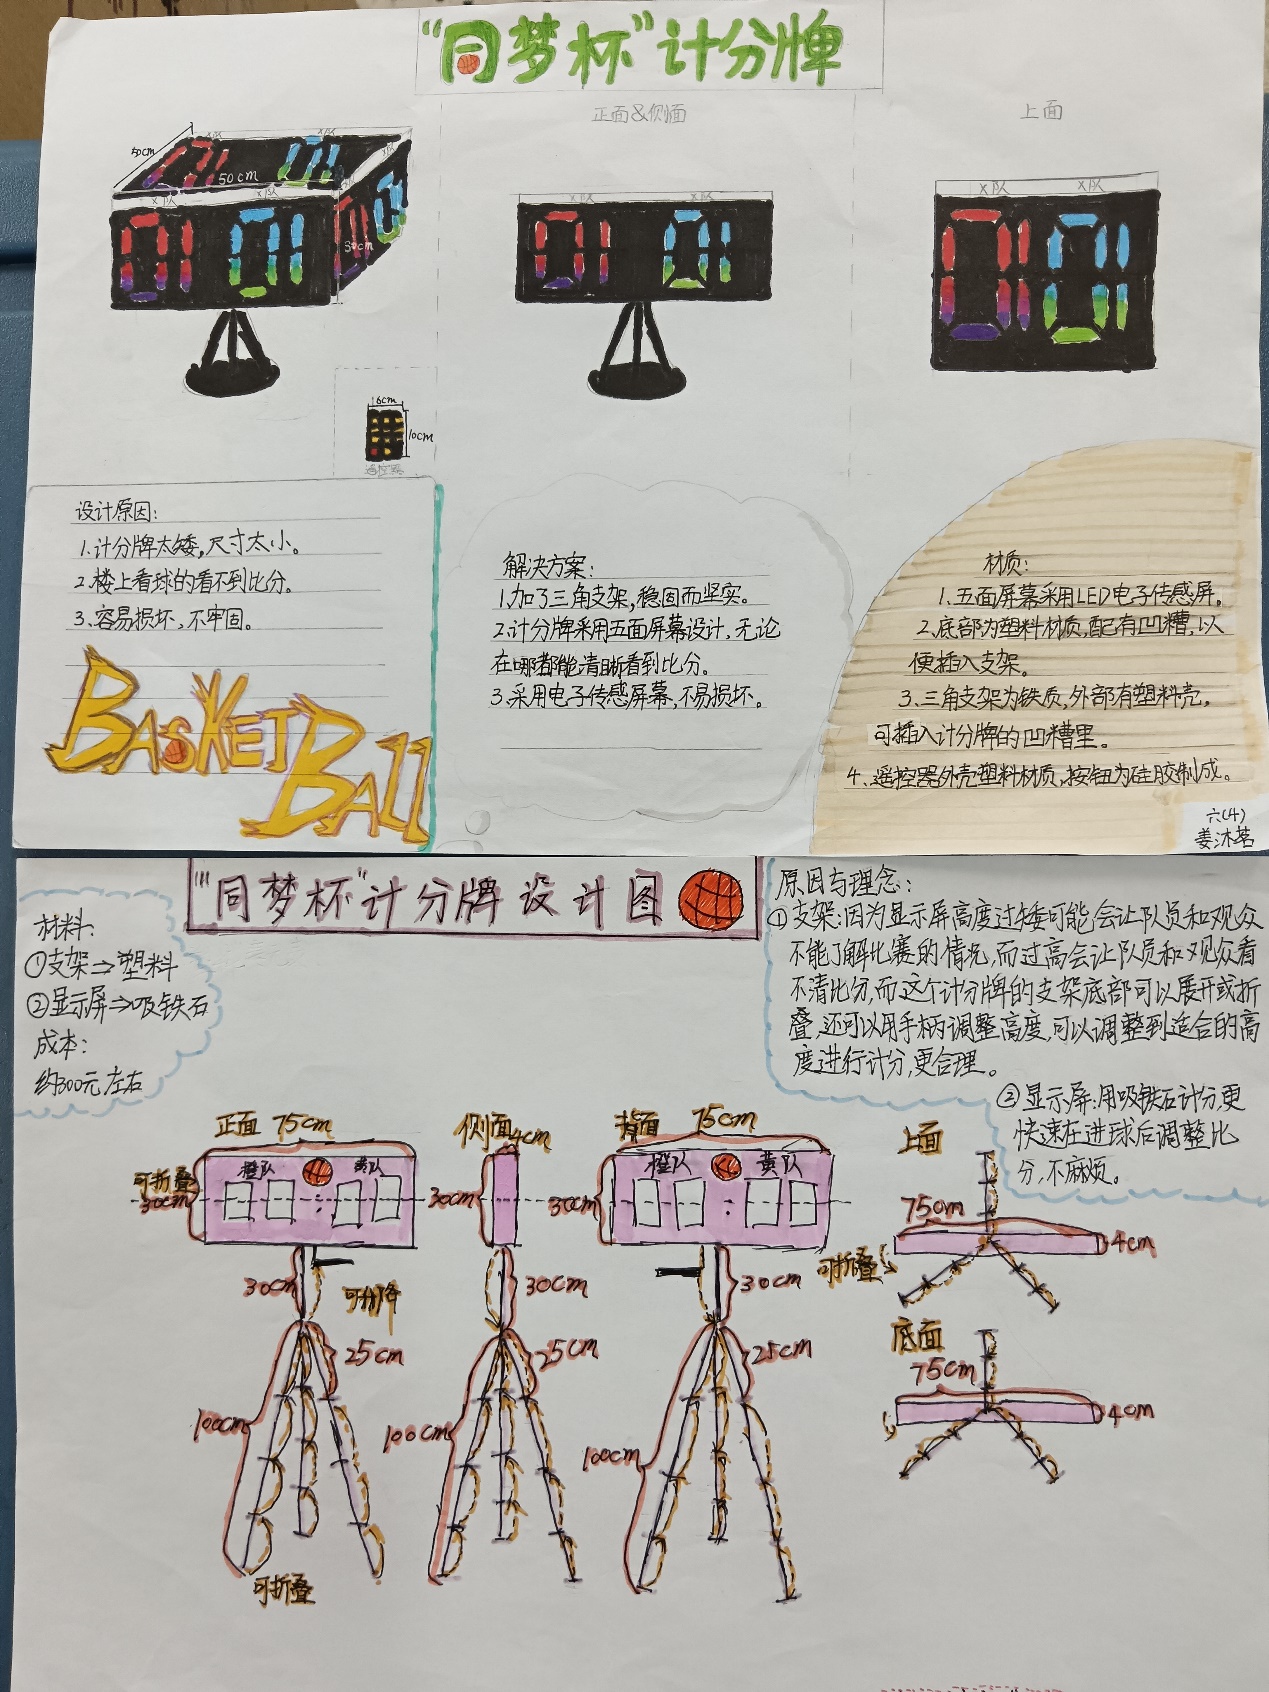 “同梦杯”计分牌
正面&侧面
上面
50cm
50cm
30cm
X队
X队
X队
X队
X队
X队
X队
X队
6cm
10cm
遥控器
设计原因:
1.计分牌太矮,尺寸太小。
2.楼上看球的看不到比分。
3.容易损坏,不牢固。
BASKETBALL
解决方案:
1.加了三角支架,稳固而坚实。
2.计分牌采用五面屏幕设计,无论
在哪都能清晰看到比分。
3.采用电子传感屏幕,不易损坏。
材质:
1.五面屏幕采用LED电子传感屏。
2.底部为塑料材质,配有凹槽,以
便插入支架。
3.三角支架为铁质,外部有塑料壳,
可插入计分牌的凹槽里。
4.遥控器外壳塑料材质,按钮为硅胶制成。
六(4)
姜沐茗
“同梦杯”计分牌设计图
材料:
①支架⇒塑料
②显示屏⇒吸铁石
成本:
约300元左右
原因与理念:
①支架:因为显示屏高度过矮可能会让队员和观众
不能了解比赛的情况,而过高会让队员和观众看
不清比分,而这个计分牌的支架底部可以展开或折
叠,还可以用手柄调整高度,可以调整到适合的高
度进行计分,更合理。
②显示屏:用吸铁石计分,更
快速在进球后调整比
分,不麻烦。
正面 75cm
可折叠
30cm
橙队 黄队
30cm
可升降
25cm
100cm
可折叠
侧面 4cm
30cm
30cm
25cm
100cm
背面 75cm
30cm
橙队 黄队
30cm
25cm
100cm
上面
75cm
4cm
可折叠
底面
75cm
4cm